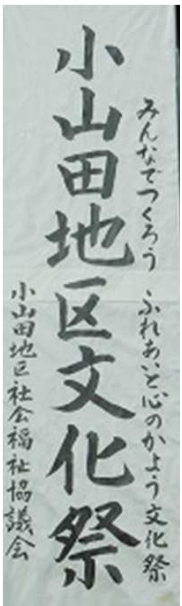 みんなでつくろう ふれあいと心のかよう文化祭
小山田地区文化祭
小山田地区社会福祉協議会